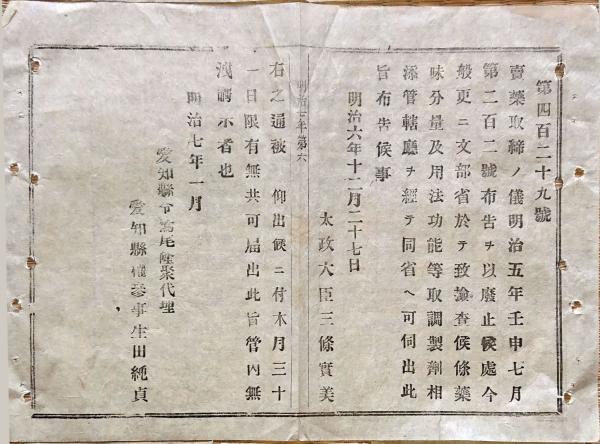 第四百二十九號
賣藥取締ノ儀明治五年壬申七月
第二百二號布告ヲ以廢止候處今
般更ニ文部省於テ致撿査候條藥
味分量及用法功能等取調製劑相
添管轄廳ヲ經テ同省ヘ可伺出此
旨布告候事
明治六年十二月二十七日
太政大臣三條實美
明治七年第六
右之通被 仰出候ニ付本月三十
一日限有無共可屆出此旨管內無
洩諭示者也
明治七年一月
愛知縣令鷲尾隆聚代理
愛知縣權參事生田純貞